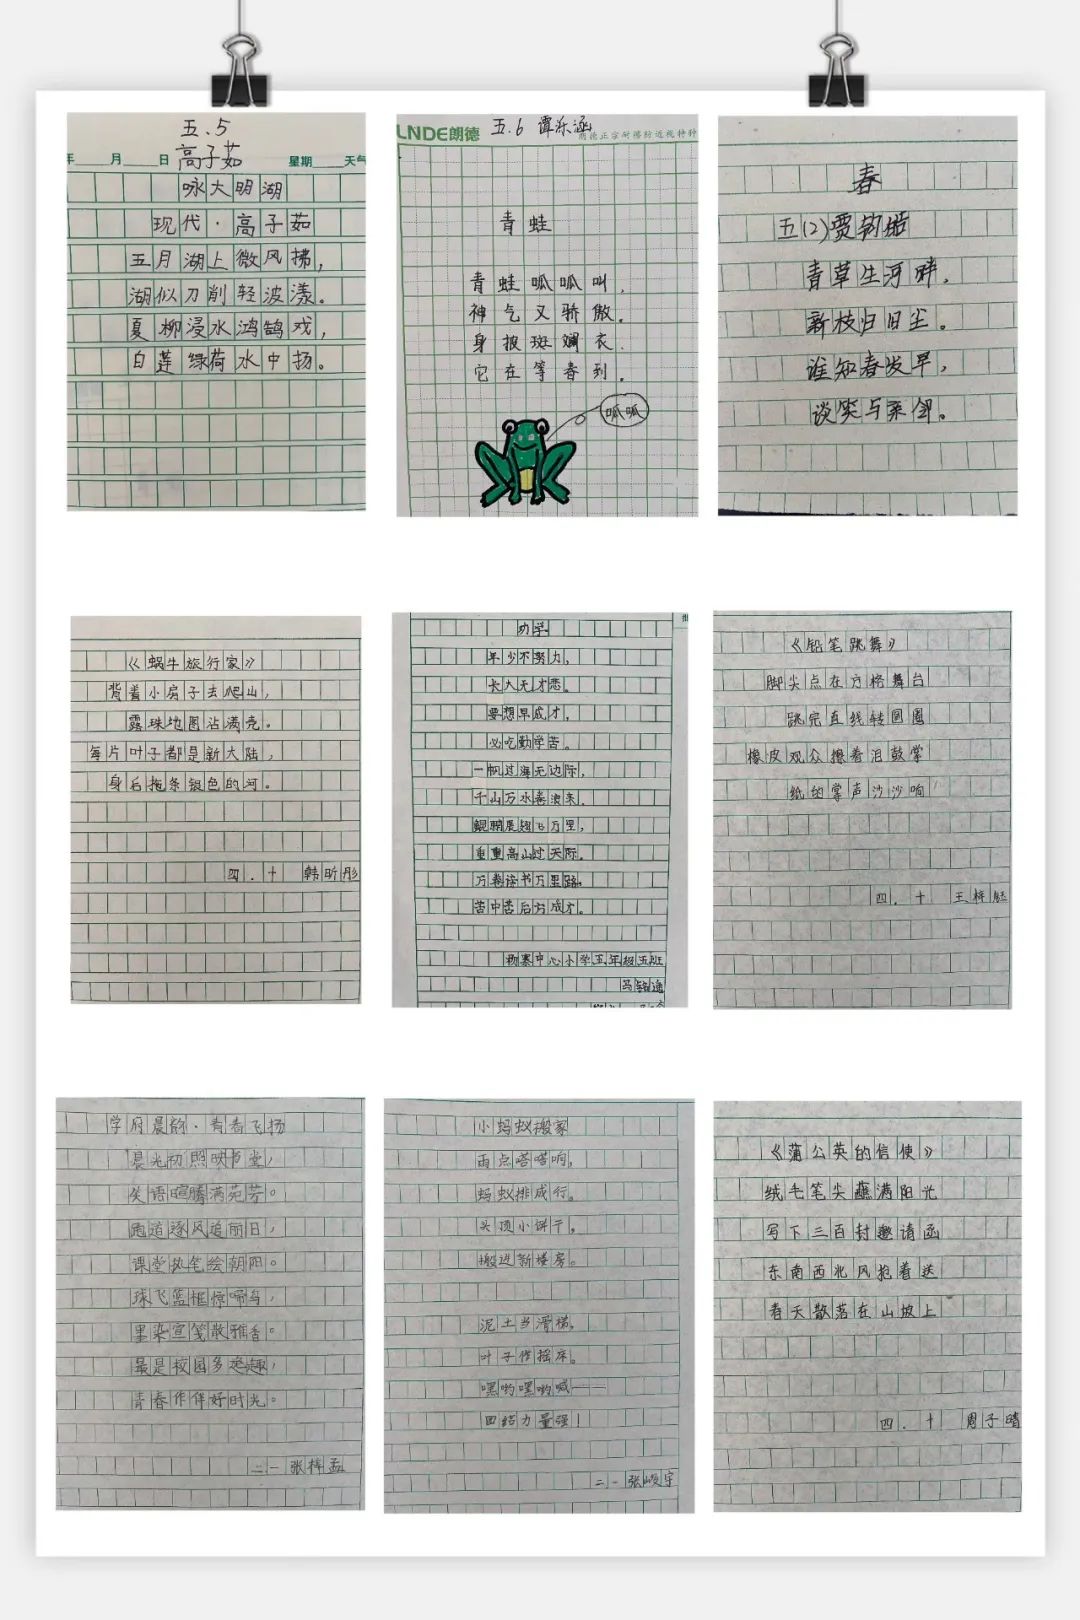 五.5
高子茹
年 月 日 星期 天气
咏大明湖
现代·高子茹
五月湖上微风拂，
湖似刀削轻波漾。
夏柳浸水鸿鹄戏，
白莲绿荷水中扬。
LNDE朗德
五.6 谭乐涵
青蛙
青蛙呱呱叫，
神气又骄傲。
身披斑斓衣.
它在等春到。
呱呱
春
五(2)贾钧皓
青草生河畔，
新枝归旧尘。
谁知春发早，
谈笑与亲邻。
《蜗牛旅行家》
背着小房子去爬山，
露珠地图沾满亮。
每片叶子都是新大陆，
身后拖条银色的河。
四.十 韩昕彤
劝学
年少不努力，
长大无才悲。
要想早成才，
必吃勤学苦。
一帆过海无边际，
千山万水卷浪来。
鲲鹏展翅飞万里，
重重高山过天际。
万卷读书万里路，
苦中苦后方成才。
中心小学五年级五班
《铅笔跳舞》
脚尖点在方格舞台
跳完直线转圆圈
橡皮观众擦着泪鼓掌
纸的掌声沙沙响
四.十 王梓
学府晨韵·青春飞扬
晨光初照映书堂，
笑语喧腾满苑芳。
跑道逐风追丽日，
课堂执笔绘朝阳。
球飞篮框惊啼鸟，
墨染宣笺散雅香。
最是校园多逸趣，
青春作伴好时光。
二一 张梓孟
小蚂蚁搬家
雨点嗒嗒响，
蚂蚁排成行。
头顶小饼干。
搬进新楼房。
泥土当滑梯，
叶子作摇床。
嘿哟嘿哟喊——
团结力量强！
二一 张峻宇
《蒲公英的信使》
绒毛笔尖蘸满阳光
写下三百封邀请函
东南西北风抢着送
春天散落在山坡上
四.十 周子晴